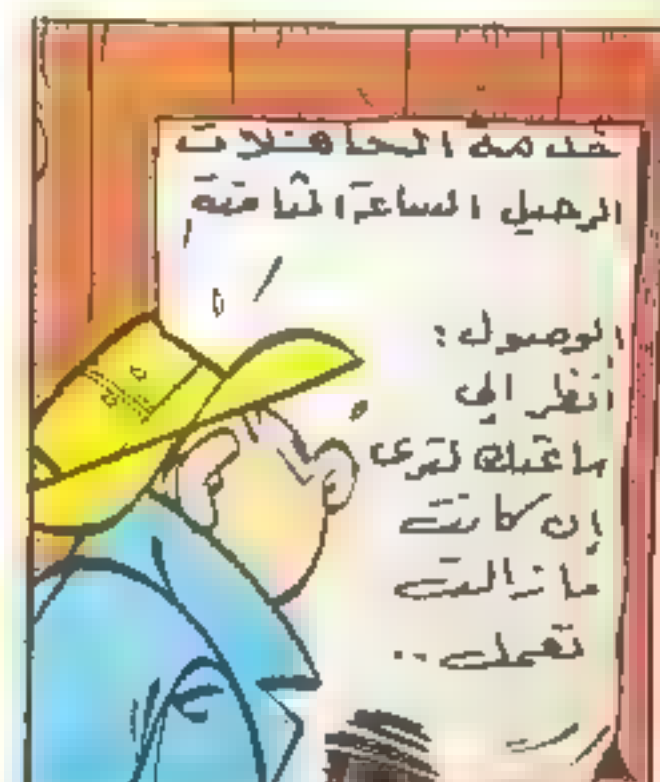 خدمة الحافلات
الرحيل الساعة الثامنة
الوصول:
أنظر الى
ساعتك لترى
إن كانت
ما زالت
تعمل..